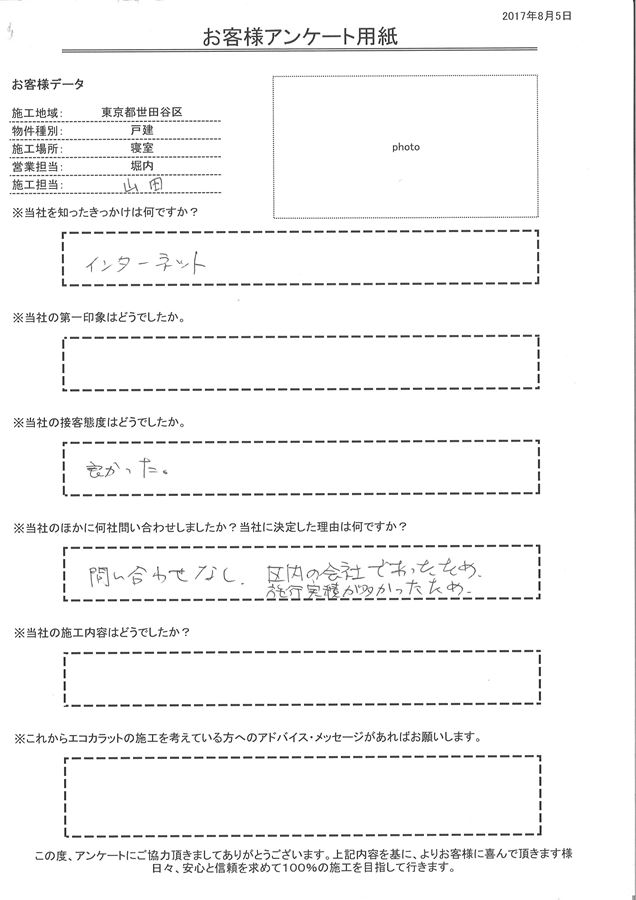 2017年8月5日
お客様アンケート用紙
お客様データ
施工地域: 東京都世田谷区
物件種別: 戸建
施工場所: 寝室
営業担当: 堀内
施工担当: 山田
photo
※当社を知ったきっかけは何ですか？
インターネット
※当社の第一印象はどうでしたか。
※当社の接客態度はどうでしたか。
良かった。
※当社のほかに何社問い合わせしましたか？当社に決定した理由は何ですか？
問い合わせなし. 区内の会社であったため.
施行実積が多かったため.
※当社の施工内容はどうでしたか？
※これからエコカラットの施工を考えている方へのアドバイス・メッセージがあればお願いします。
この度、アンケートにご協力頂きましてありがとうございます。上記内容を基に、よりお客様に喜んで頂きます様
日々、安心と信頼を求めて100%の施工を目指して行きます。